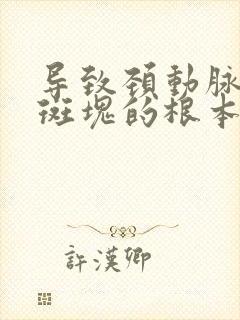 导致颈動脉
斑塊的根本
許漢卿